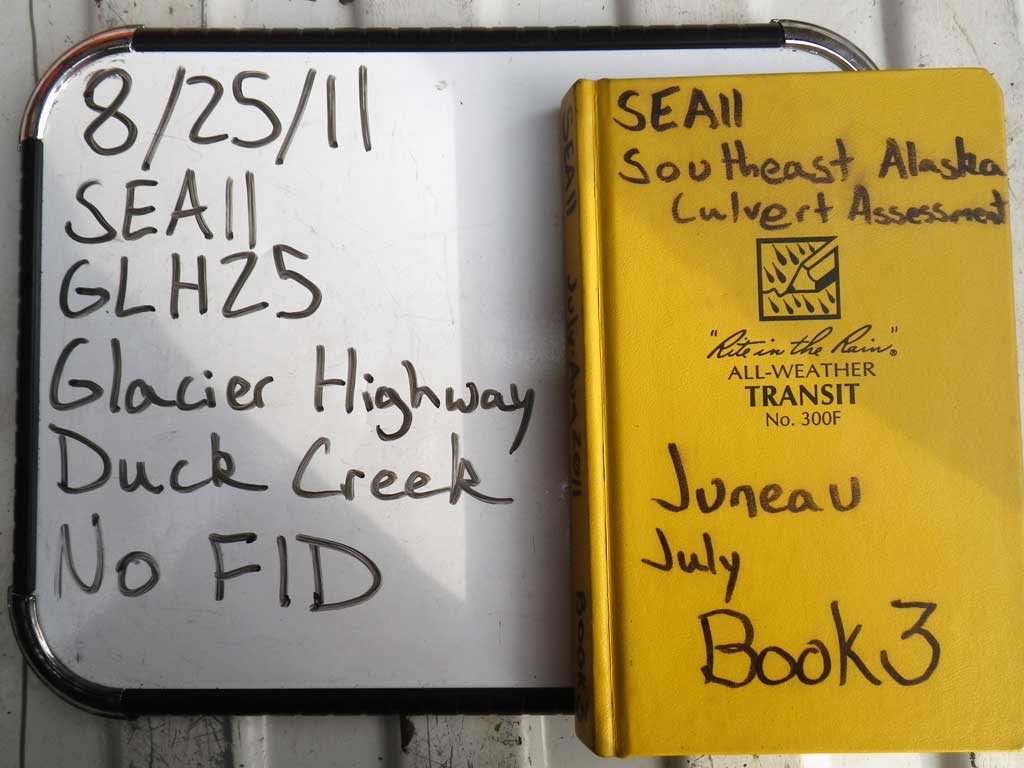 8/25/11
SEA11
GLH25
Glacier Highway
Duck Creek
No FID
SEA11
Southeast Alaska
Culvert Assessment
"Rite in the Rain"®
ALL-WEATHER
TRANSIT
No. 300F
Juneau
July
Book 3
SEA11